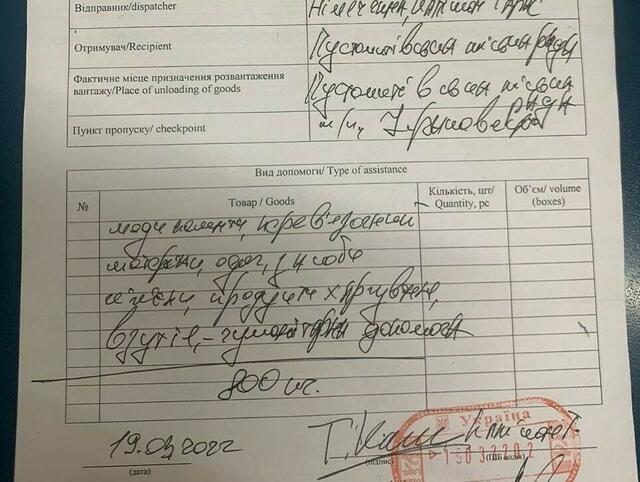 Відправник/dispatcher
Отримувач/Recipient
Пустомитівська міська рада
Фактичне місце призначення розвантаження
вантажу/Place of unloading of goods
Пустомитівська міська
рада
Пункт пропуску/ checkpoint
Вид допомоги/ Type of assistance
№
Товар / Goods
Кількість, шт/
Quantity, pc
Об'єм/ volume
(boxes)
медикаменти, перев'язочні
матеріали, одяг, засоби
гігієни, продукти харчування,
взуття, – гуманітарна допомога
800 кг.
19.03.2022
(дата)
(підпис)
Україна